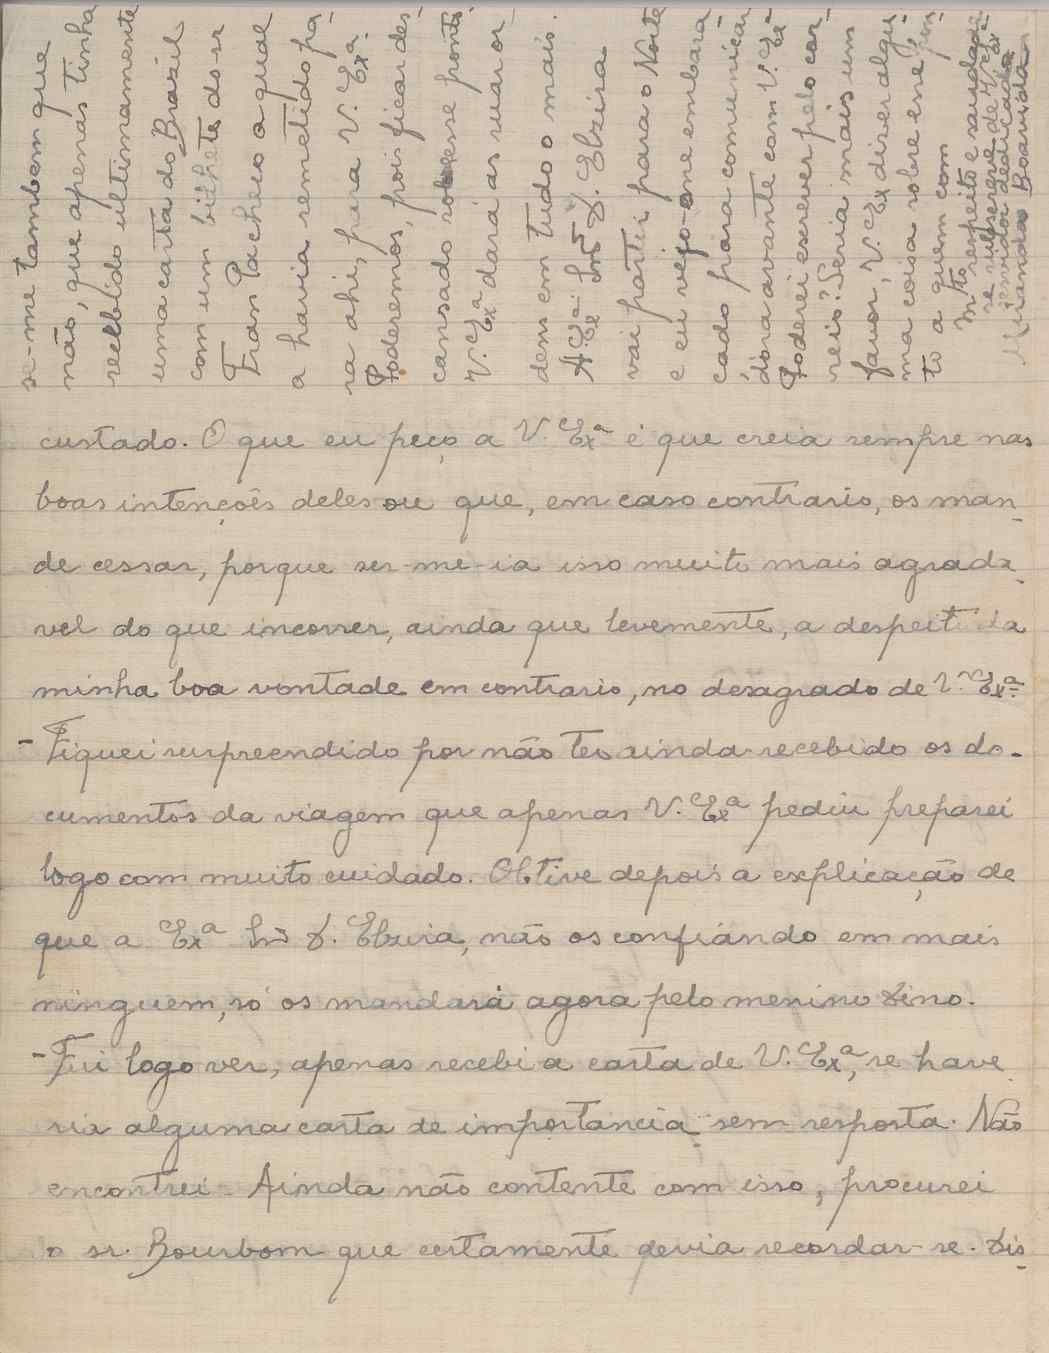 custado. O que eu peço a V. Exª é que creia sempre nas
boas intenções deles ou que, em caso contrario, os man-
de cessar, porque ser-me-ia isso muito mais agrada-
vel do que incorrer, ainda que levemente, a despeito da
minha boa vontade em contrario, no desagrado de V. Exª.
- Fiquei surpreendido por não ter ainda recebido os do-
cumentos da viagem que apenas V. Exª pediu preparei
logo com muito cuidado. Obtive depois a explicação de
que a Exª Snrª D. Elzira, não os confiando em mais
ninguem, só os mandará agora pelo menino Dino.
- Fui logo ver, apenas recebi a carta de V. Exª, se have-
ria alguma carta de importancia sem resposta. Não
encontrei. Ainda não contente com isso, procurei
o sr. Bourbom que certamente devia recordar-se. Dis-
se-me tambem que
não, que apenas tinha
recebido ultimamente
uma carta do Brazil
com um bilhete do sr
Fran Pacheco a qual
a havia remetido pa-
ra ahi, para V. Exª.
Poderemos, pois ficar des-
cansado sobre esse ponto.
V. Exª dará as suas or-
dens em tudo o mais.
A Exª Snrª D. Elzira
vai partir para o Norte
e eu vejo-me embara-
çado para comunicar
d'ora avante com V. Exª
Poderei escrever pelo cor-
reio? Seria mais um
favor, V. Ex dizer algu-
ma coisa sobre esse pon-
to a quem com
mto respeito e saudade
se subscreve de V. Exª
servidor dedicado
Miranda Boavida